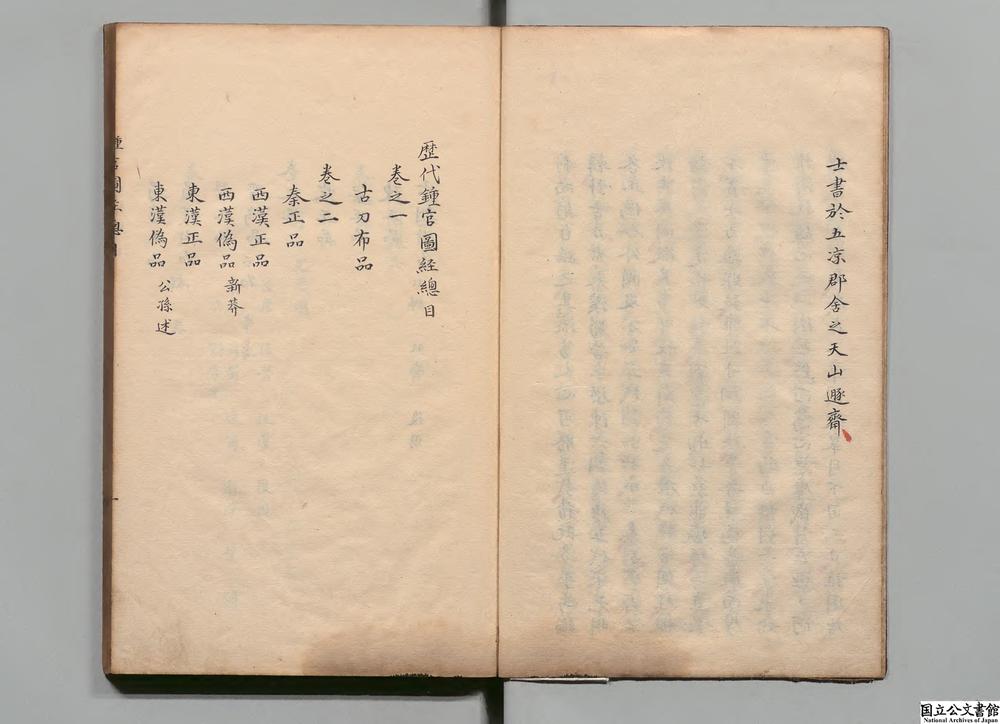 士書於五凉郡舍之天山遯齋
歷代鍾官圖経總目
卷之一
古刀布品
卷之二
秦正品
西漢正品
西漢偽品 新莽
東漢正品
東漢偽品 公孫述
国立公文書館
National Archives of Japan